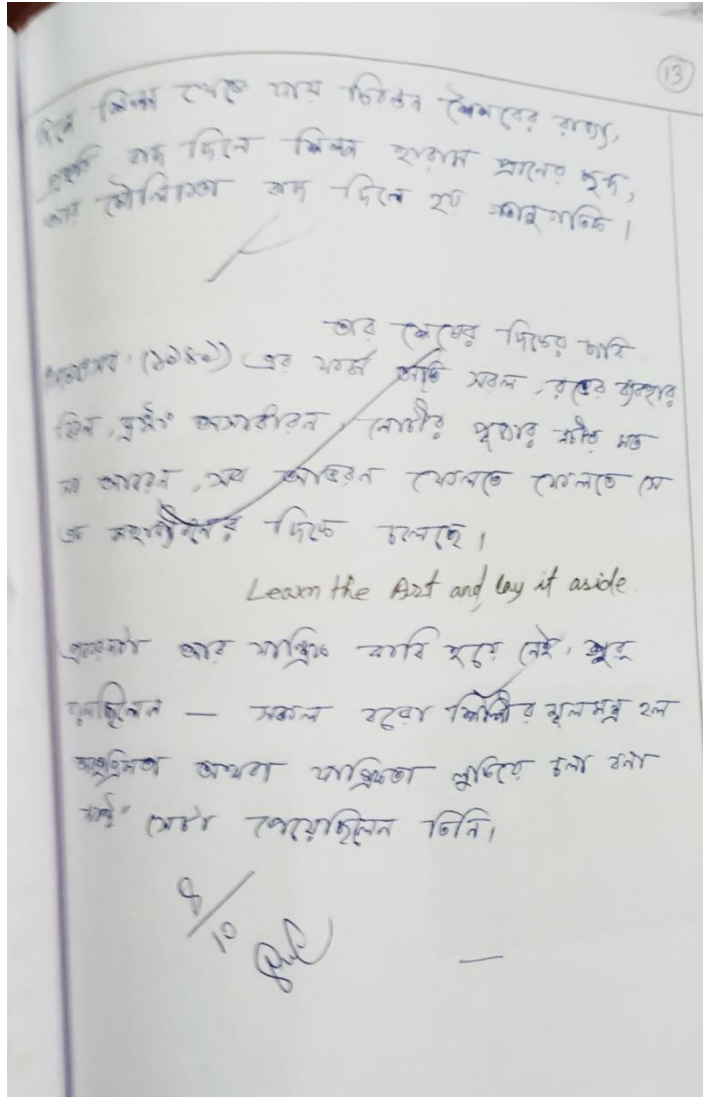 13
দিলে শিল্পী থেকে যায় চিরন্তন শৈশবের রাজ্য,
প্রকৃতি বাদ দিলে শিল্প হারাম প্রানের ছন্দ,
আর মৌলিকতা বাদ দিলে হয় গতানুগতিক।
তার শেষের দিকের ছবি
(১৯৪১) এর ফর্ম অতি সরল, রঙের ব্যবহার
ছিল, অসাধারন, নোটীর পূজার নটীর মত
সব আবরন, সব আভরন ফেলতে ফেলতে সে
এক মহাজীবনের দিকে চলেছে।
Learn the Art and lay it aside.
আর যান্ত্রিক দাবি হয়ে নেই, শুধু
বলেছিলেন — সকল বড়ো শিল্পীর মূলমন্ত্র হল
অথবা যান্ত্রিকতা লুকিয়ে চলা বলা
সেটা পেয়েছিলেন তিনি।
8/10